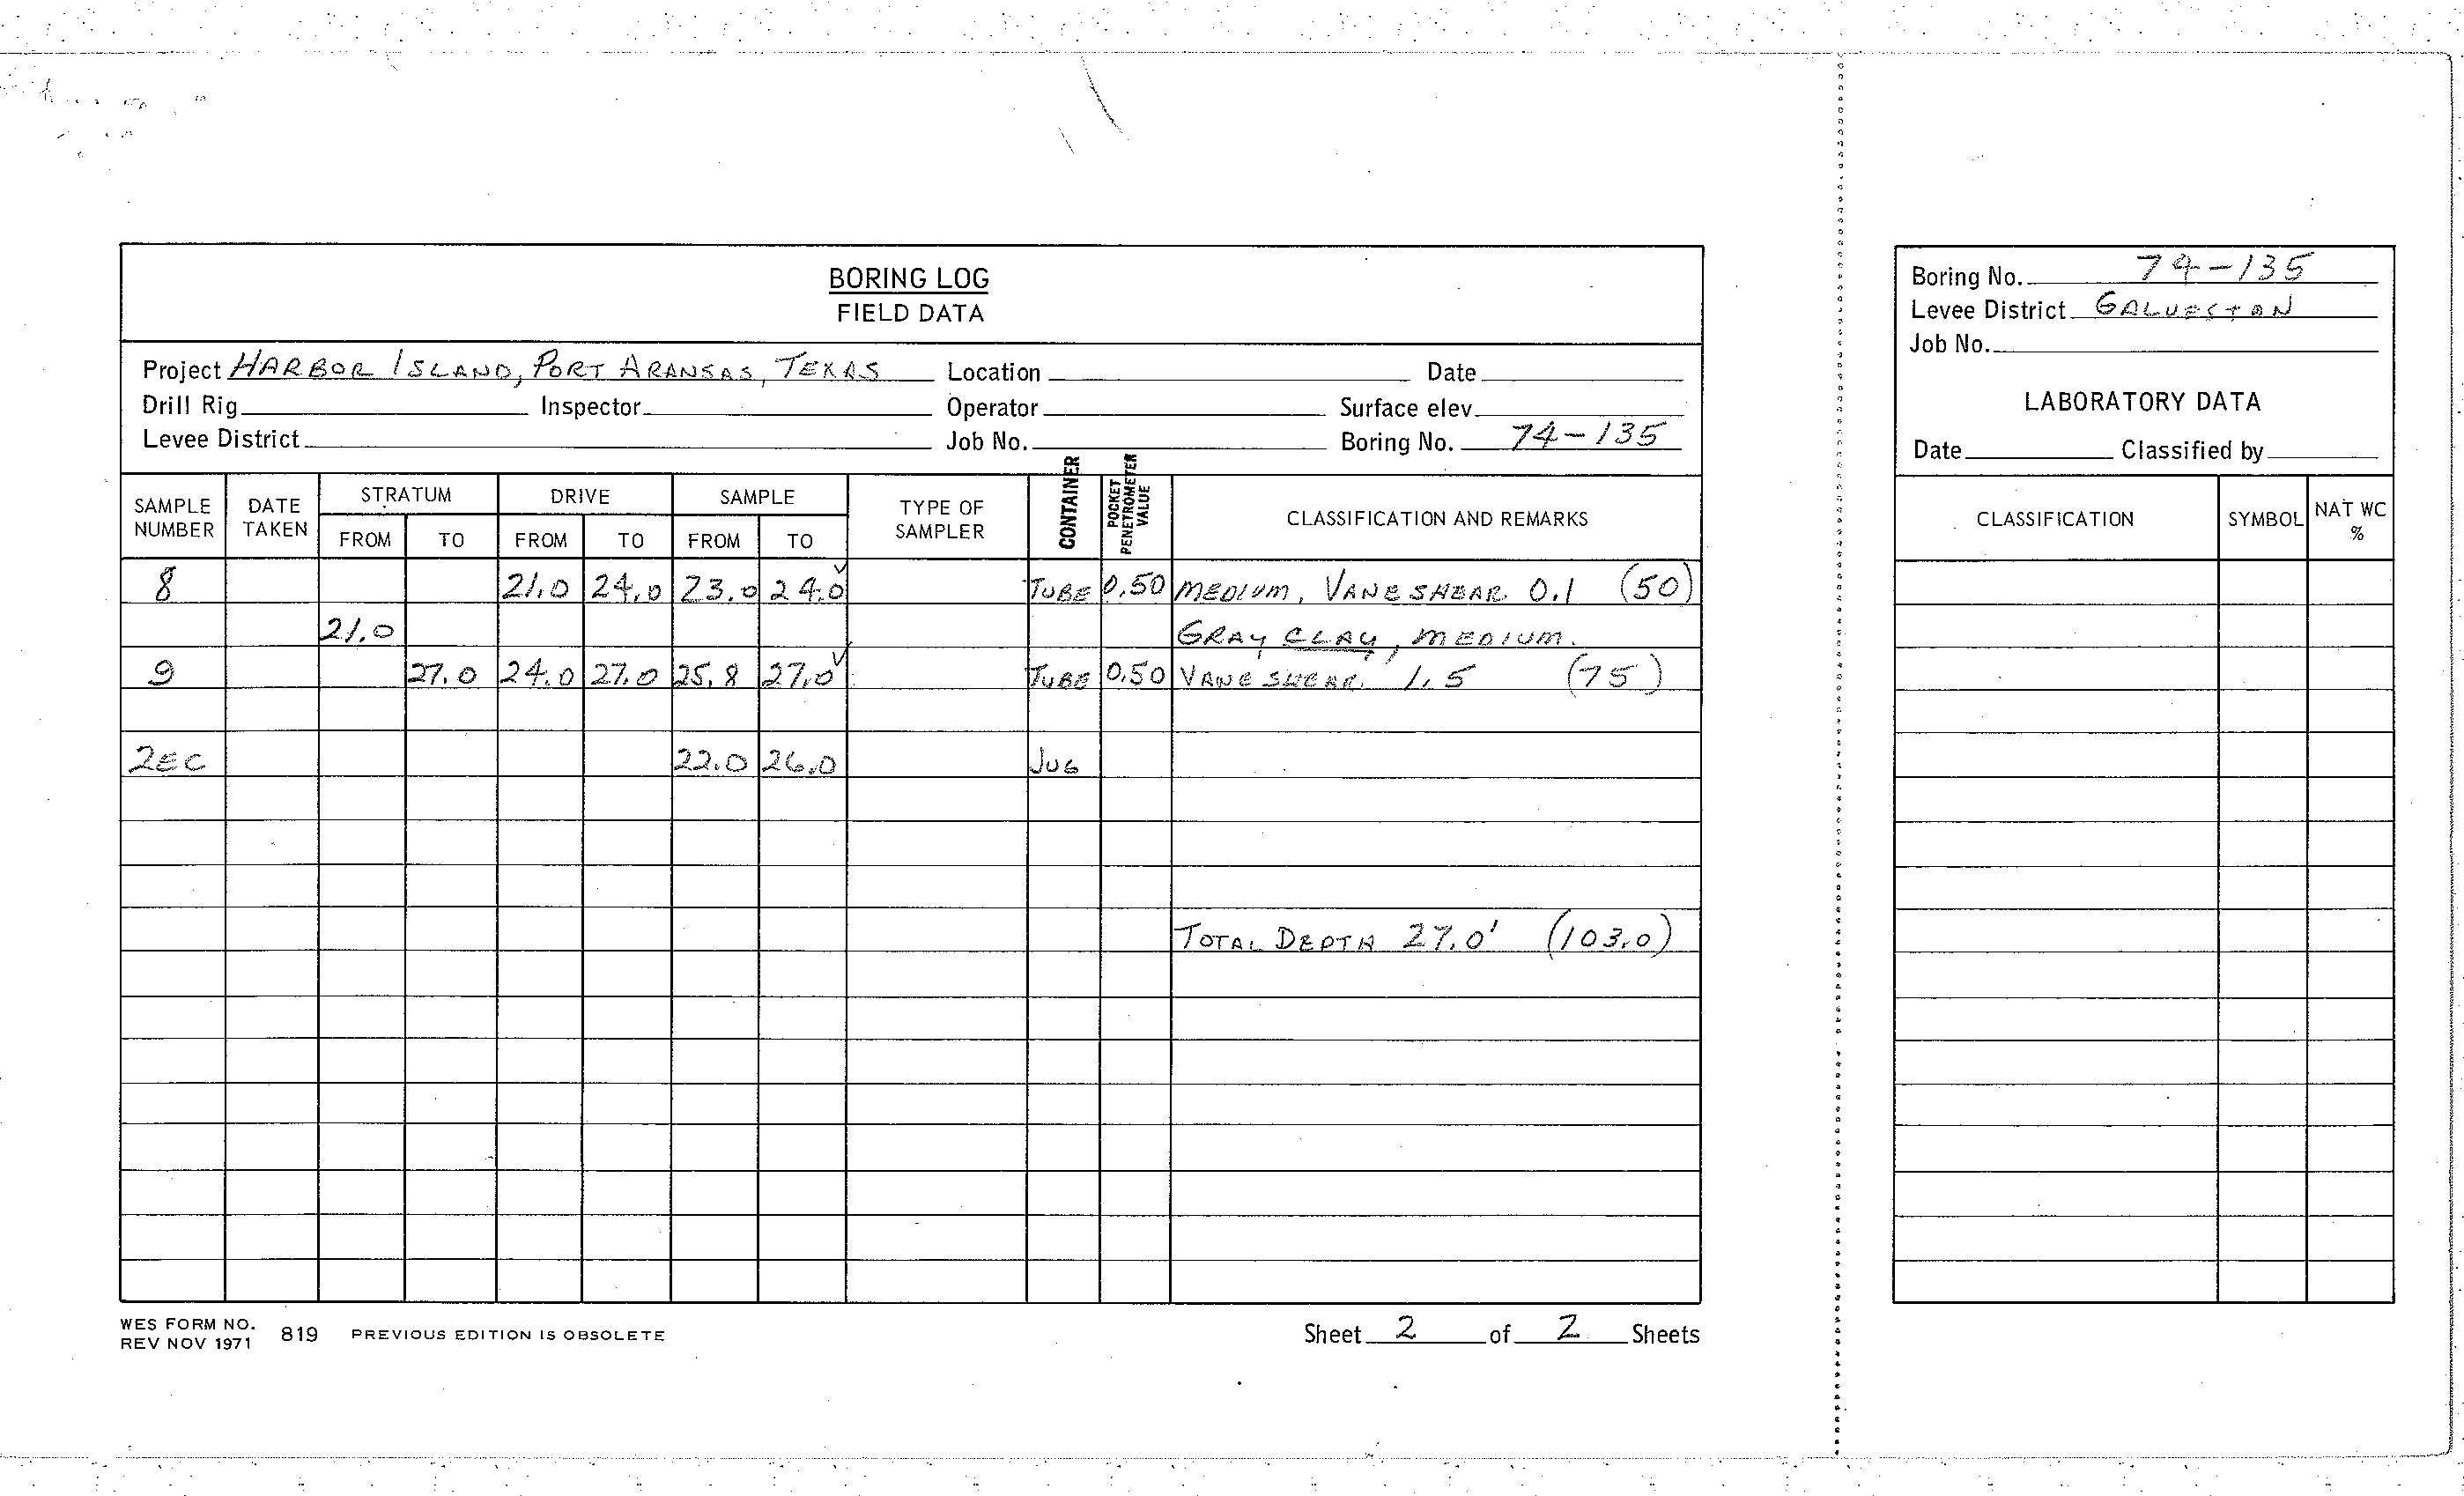 BORING LOG
FIELD DATA
Project HARBOR ISLAND, PORT ARANSAS, TEXAS Location Date
Drill Rig Inspector Operator Surface elev.
Levee District Job No. Boring No. 74-135
SAMPLE NUMBER DATE TAKEN STRATUM FROM TO DRIVE FROM TO SAMPLE FROM TO TYPE OF SAMPLER CONTAINER POCKET PENETROMETER VALUE CLASSIFICATION AND REMARKS
8 21.0 24.0 23.0 24.0 ✓ TUBE 0.50 MEDIUM, VANE SHEAR 0.1 (50)
21.0 GRAY CLAY, MEDIUM.
9 27.0 24.0 27.0 25.8 27.0 ✓ TUBE 0.50 VANE SHEAR. 1.5 (75)
2EC 22.0 26.0 JUG
TOTAL DEPTH 27.0' (103.0)
WES FORM NO. 819 PREVIOUS EDITION IS OBSOLETE
REV NOV 1971
Sheet 2 of 2 Sheets
Boring No. 74-135
Levee District GALVESTON
Job No.
LABORATORY DATA
Date Classified by
CLASSIFICATION SYMBOL NAT WC %